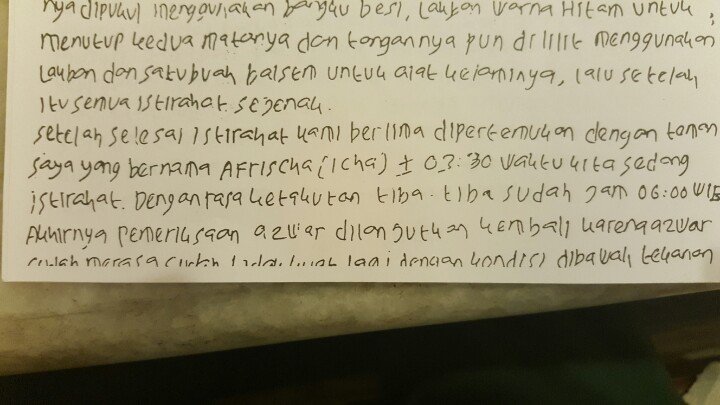 nya dipukul menggunakan bangku besi, Lakban warna Hitam untuk
menutup kedua matanya dan tangannya pun dililit menggunakan
Lakban dan satu buah balsem untuk alat kelaminya, lalu setelah
itu semua istirahat sejenak.
setelah selesai istirahat kami berlima dipertemukan dengan teman
saya yang bernama AFrischa (Icha) ± 03:30 waktu kita sedang
istirahat. Dengan rasa ketakutan tiba-tiba sudah jam 06:00 WIB
Akhirnya pemeriksaan azwar dilanjutkan kembali karena azwar
sudah merasa sudah tidak kuat lagi dengan kondisi dibawah tekanan